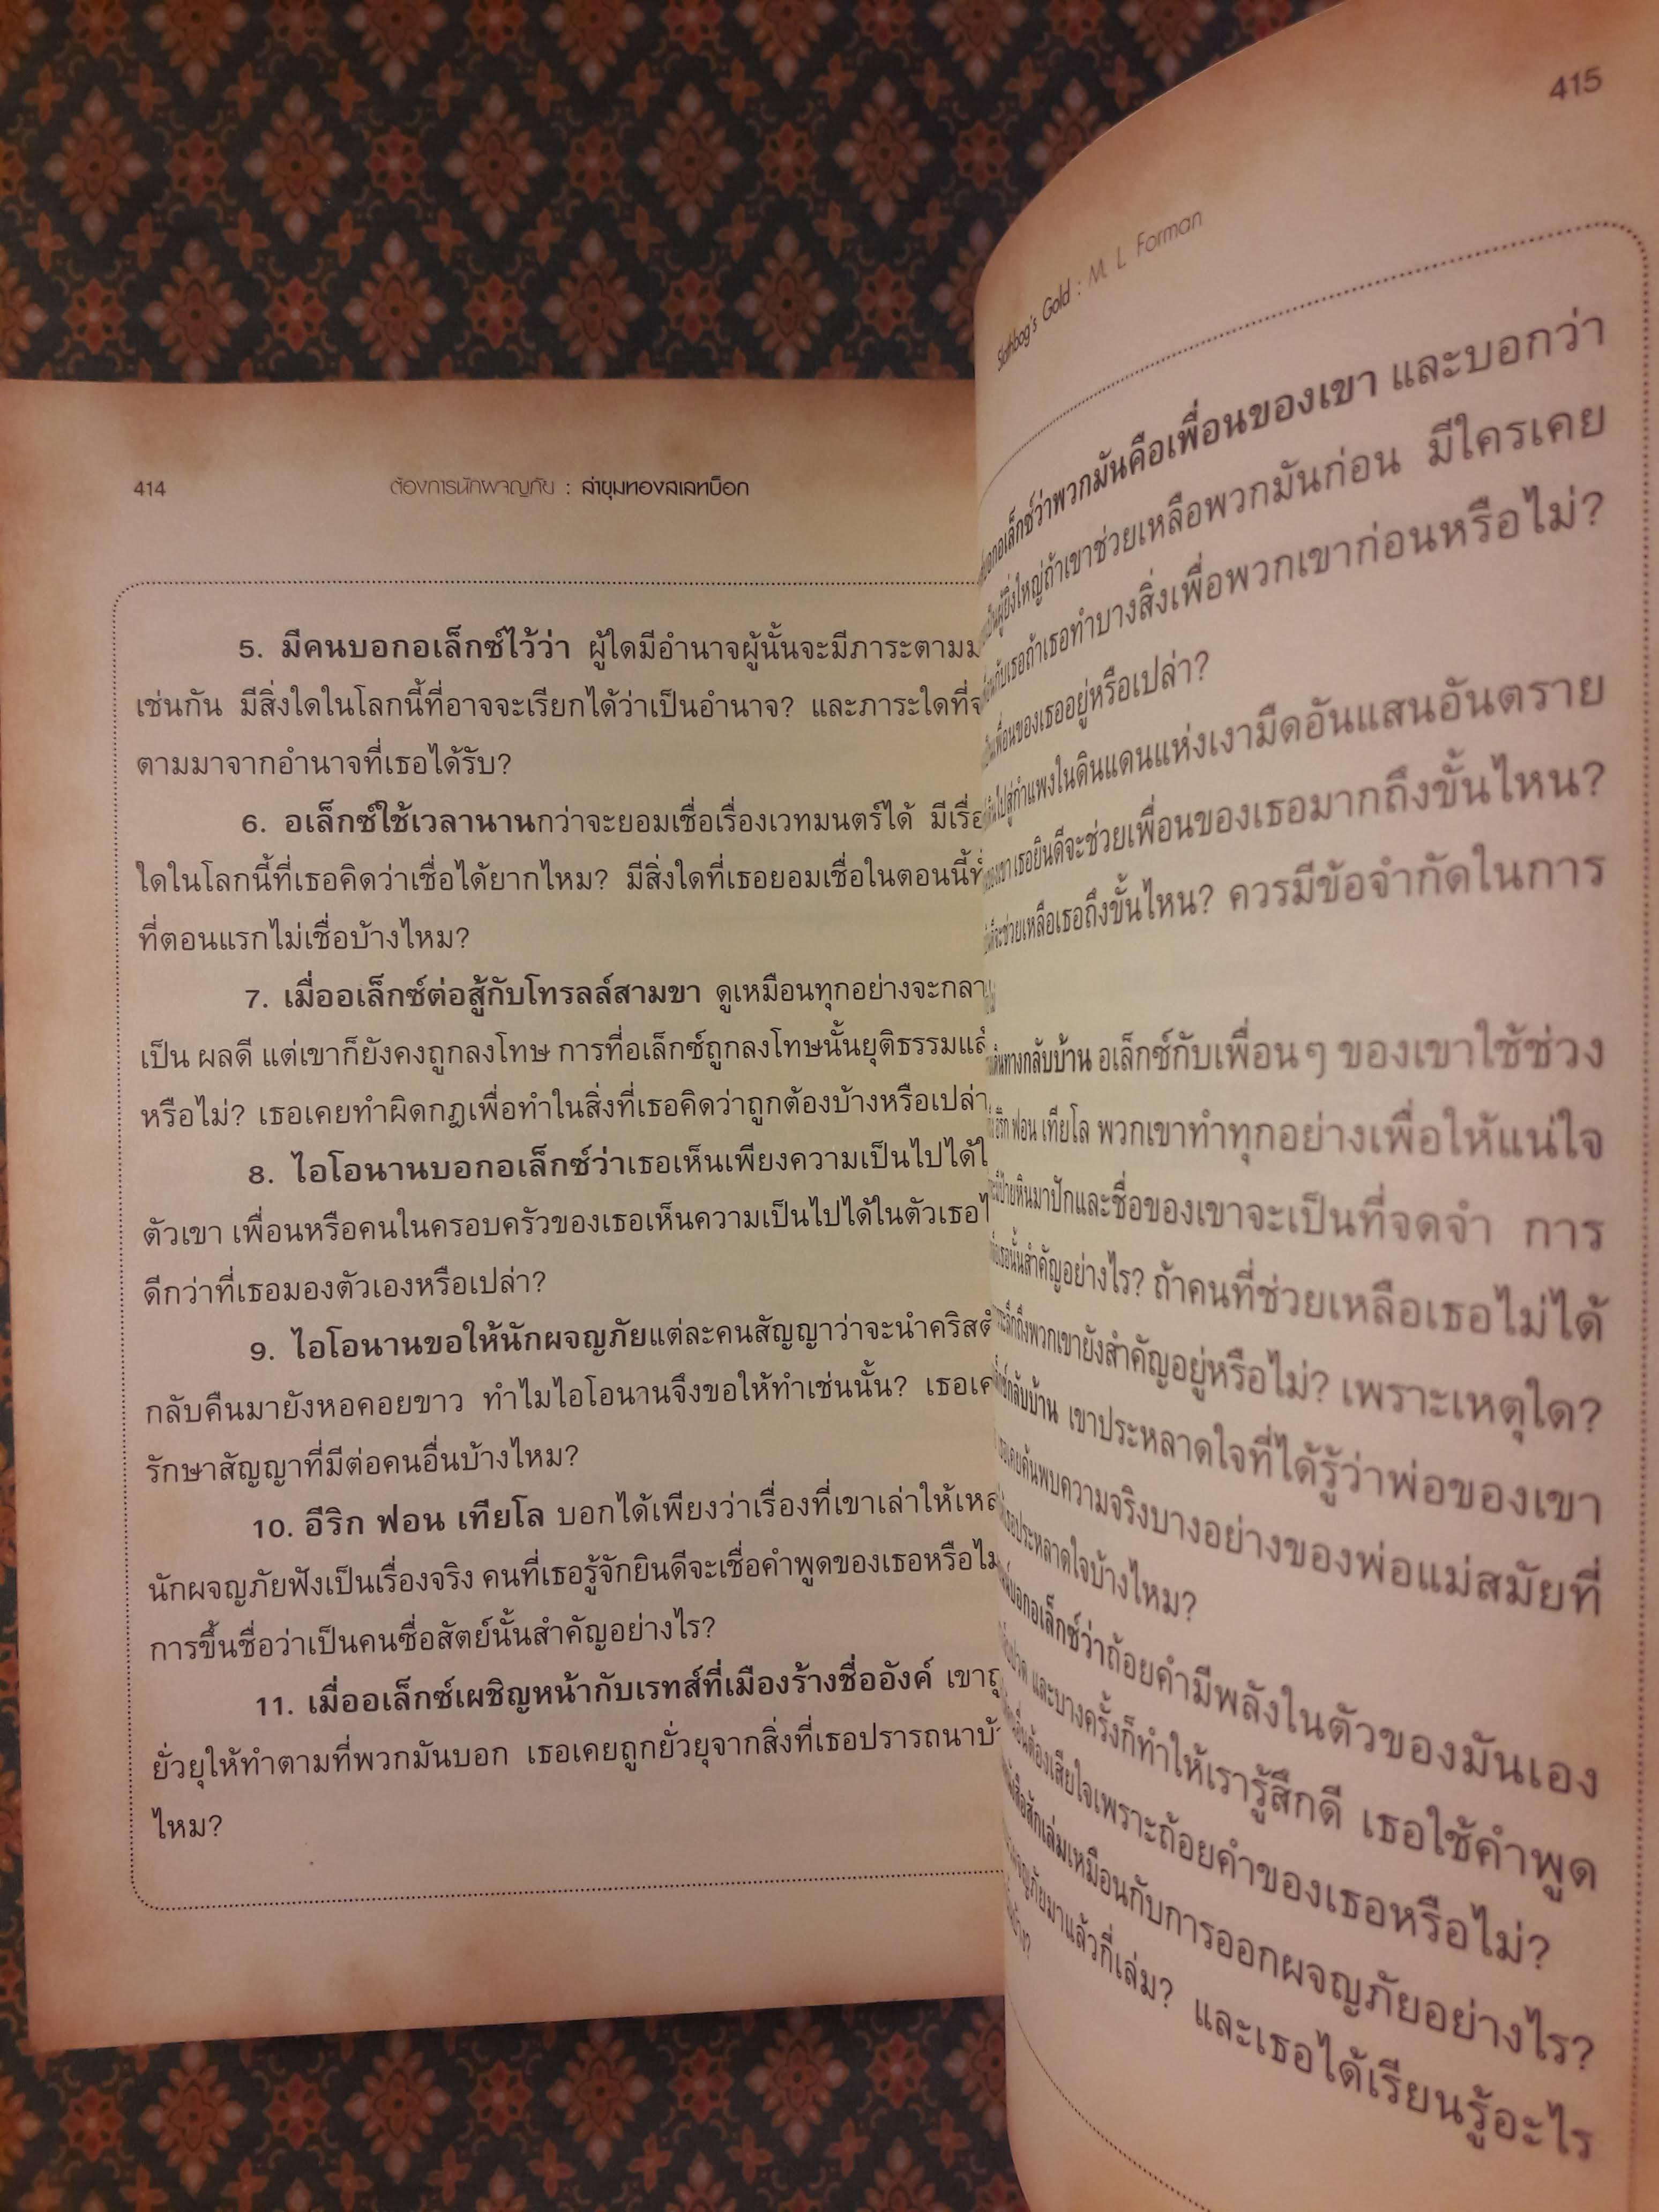 414
ต้องการนักผจญภัย : ล่าขุมทองสเลทบ็อก
5. มีคนบอกอเล็กซ์ไว้ว่า ผู้ใดมีอำนาจผู้นั้นจะมีภาระตามม
เช่นกัน มีสิ่งใดในโลกนี้ที่อาจจะเรียกได้ว่าเป็นอำนาจ? และภาระใดที่จ
ตามมาจากอำนาจที่เธอได้รับ?
6. อเล็กซ์ใช้เวลานานกว่าจะยอมเชื่อเรื่องเวทมนตร์ได้ มีเรื่อ
ใดในโลกนี้ที่เธอคิดว่าเชื่อได้ยากไหม? มีสิ่งใดที่เธอยอมเชื่อในตอนนี้ทั้
ที่ตอนแรกไม่เชื่อบ้างไหม?
7. เมื่ออเล็กซ์ต่อสู้กับโทรลล์สามขา ดูเหมือนทุกอย่างจะกลา
เป็น ผลดี แต่เขาก็ยังคงถูกลงโทษ การที่อเล็กซ์ถูกลงโทษนั้นยุติธรรมแล้
หรือไม่? เธอเคยทำผิดกฎเพื่อทำในสิ่งที่เธอคิดว่าถูกต้องบ้างหรือเปล่า
8. ไอโอนานบอกอเล็กซ์ว่าเธอเห็นเพียงความเป็นไปได้ใ
ตัวเขา เพื่อนหรือคนในครอบครัวของเธอเห็นความเป็นไปได้ในตัวเธอไ
ดีกว่าที่เธอมองตัวเองหรือเปล่า?
9. ไอโอนานขอให้นักผจญภัยแต่ละคนสัญญาว่าจะนำคริสต
กลับคืนมายังหอคอยขาว ทำไมไอโอนานจึงขอให้ทำเช่นนั้น? เธอเค
รักษาสัญญาที่มีต่อคนอื่นบ้างไหม?
10. อีริก ฟอน เทียโล บอกได้เพียงว่าเรื่องที่เขาเล่าให้เหล
นักผจญภัยฟังเป็นเรื่องจริง คนที่เธอรู้จักยินดีจะเชื่อคำพูดของเธอหรือไม
การขึ้นชื่อว่าเป็นคนซื่อสัตย์นั้นสำคัญอย่างไร?
11. เมื่ออเล็กซ์เผชิญหน้ากับเรทส์ที่เมืองร้างชื่ออังค์ เขาถู
ยั่วยุให้ทำตามที่พวกมันบอก เธอเคยถูกยั่วยุจากสิ่งที่เธอปรารถนาบ้
ไหม?
415
Slathbog's Gold : M. L. Forman
บอกอเล็กซ์ว่าพวกมันคือเพื่อนของเขา และบอกว่า
เป็นผู้ยิ่งใหญ่ถ้าเขาช่วยเหลือพวกมันก่อน มีใครเคย
กับเธอถ้าเธอทำบางสิ่งเพื่อพวกเขาก่อนหรือไม่?
เพื่อนของเธออยู่หรือเปล่า?
ไปสู่กำแพงในดินแดนแห่งเงามืดอันแสนอันตราย
ของเขา เธอยินดีจะช่วยเพื่อนของเธอมากถึงขั้นไหน?
จะช่วยเหลือเธอถึงขั้นไหน? ควรมีข้อจำกัดในการ
ทางกลับบ้าน อเล็กซ์กับเพื่อนๆ ของเขาใช้ช่วง
อีริก ฟอน เทียโล พวกเขาทำทุกอย่างเพื่อให้แน่ใจ
ป้ายหินมาปักและชื่อของเขาจะเป็นที่จดจำ การ
เธอนั้นสำคัญอย่างไร? ถ้าคนที่ช่วยเหลือเธอไม่ได้
ระลึกถึงพวกเขายังสำคัญอยู่หรือไม่? เพราะเหตุใด?
กลับบ้าน เขาประหลาดใจที่ได้รู้ว่าพ่อของเขา
เธอเคยค้นพบความจริงบางอย่างของพ่อแม่สมัยที่
เธอประหลาดใจบ้างไหม?
บอกอเล็กซ์ว่าถ้อยคำมีพลังในตัวของมันเอง
และบางครั้งก็ทำให้เรารู้สึกดี เธอใช้คำพูด
ต้องเสียใจเพราะถ้อยคำของเธอหรือไม่?
หนังสือสักเล่มเหมือนกับการออกผจญภัยอย่างไร?
ผจญภัยมาแล้วกี่เล่ม? และเธอได้เรียนรู้อะไร